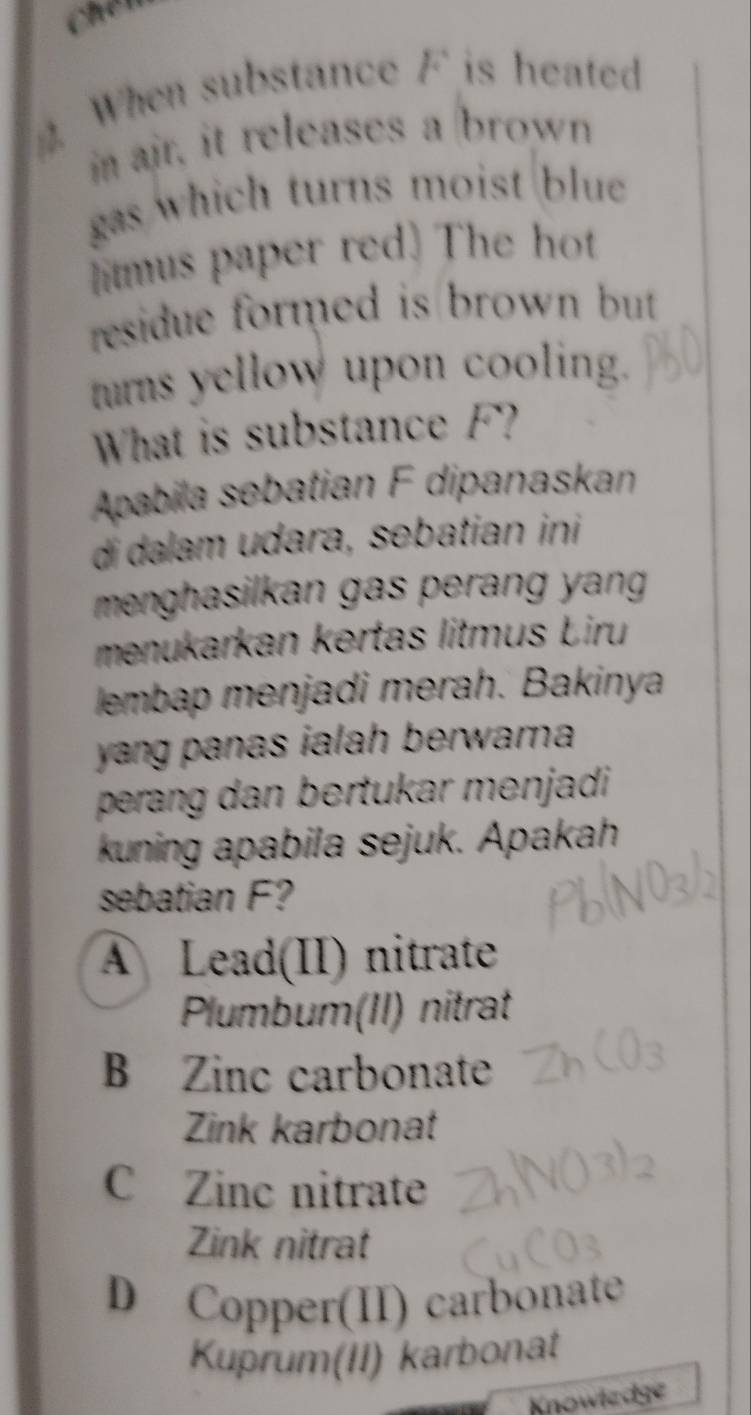 When substance F is heated
in air, it releases a brown
gas which turns moist blue
litmus paper red) The hot
residue formed is brown but
turns yellow upon cooling. PbO
What is substance F?
Apabila sebatian F dipanaskan
di dalam udara, sebatian ini
menghasilkan gas perang yang
menukarkan kertas litmus biru
lembap menjadi merah. Bakinya
yang panas ialah berwarna
perang dan bertukar menjadi
kuning apabila sejuk. Apakah
sebatian F?
Pb(NO3)2
A Lead(II) nitrate
Plumbum(II) nitrat
B Zinc carbonate ZnCO3
Zink karbonat
C Zinc nitrate Zn(NO3)2
Zink nitrat
CuCO3
D Copper(II) carbonate
Kuprum(II) karbonat
Knowledge